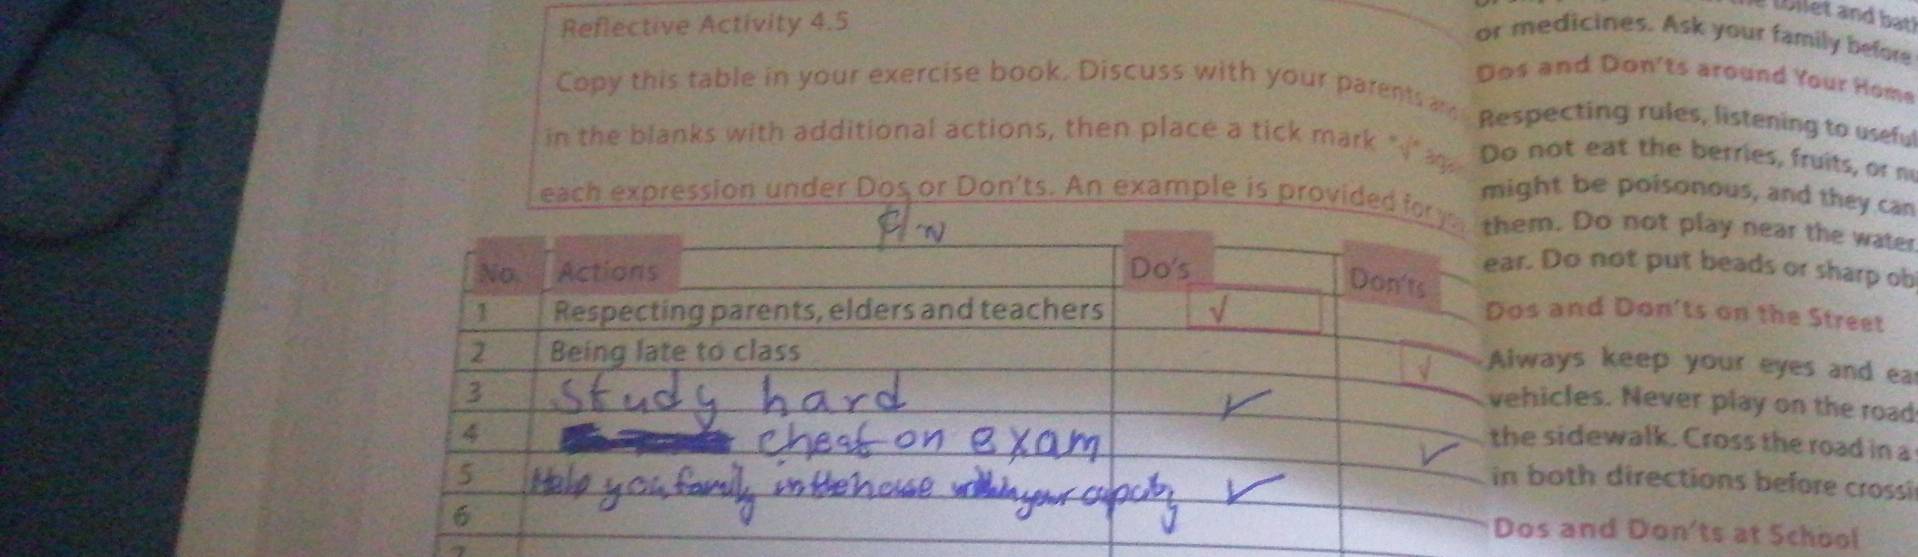 Reflective Activity 4.5
Copy this table in your exercise book. Discuss with your parents and
in the blanks with additional actions, then place a tick mark "√"
each expression under Dos or Don'ts. An example is provided for you
No. Actions Do's Don'ts
1 Respecting parents, elders and teachers √
2 Being late to class √
3 Study hard ✓
4 cheat on exam ✓
5 Help you family in the house within your capacity ✓
6
7
toilet and bath
or medicines. Ask your family before
Dos and Don'ts around Your Home
Respecting rules, listening to useful
Do not eat the berries, fruits, or nu
might be poisonous, and they can
them. Do not play near the water.
ear. Do not put beads or sharp obj
Dos and Don'ts on the Street
Always keep your eyes and ear
vehicles. Never play on the road
the sidewalk. Cross the road in a
in both directions before crossi
Dos and Don'ts at School